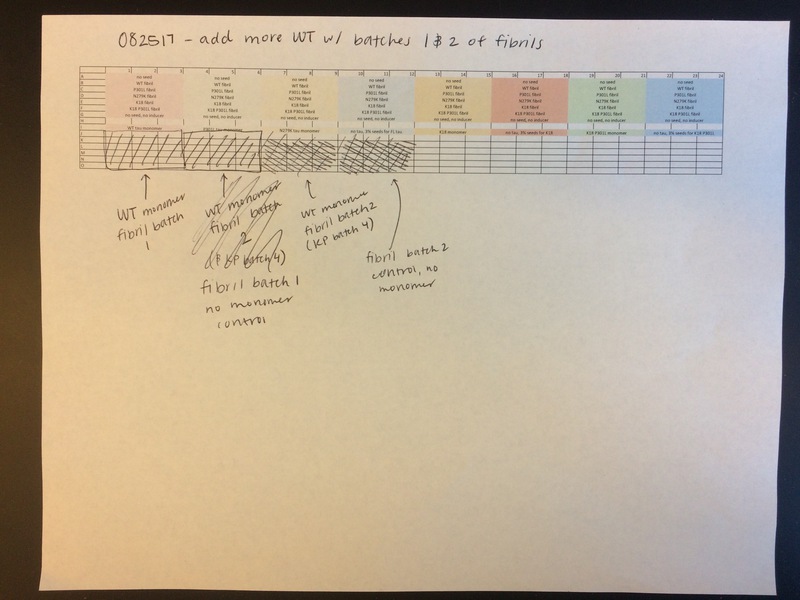 082517 - add more WT w/ batches 1 & 2 of fibrils
1 2 3 4 5 6 7 8 9 10 11 12 13 14 15 16 17 18 19 20 21 22 23 24
no seed no seed no seed no seed no seed no seed no seed no seed
WT fibril WT fibril WT fibril WT fibril WT fibril WT fibril WT fibril WT fibril
P301L fibril P301L fibril P301L fibril P301L fibril P301L fibril P301L fibril P301L fibril P301L fibril
N279K fibril N279K fibril N279K fibril N279K fibril N279K fibril N279K fibril N279K fibril N279K fibril
K18 fibril K18 fibril K18 fibril K18 fibril K18 fibril K18 fibril K18 fibril K18 fibril
K18 P301L fibril K18 P301L fibril K18 P301L fibril K18 P301L fibril K18 P301L fibril K18 P301L fibril K18 P301L fibril K18 P301L fibril
no seed, no inducer no seed, no inducer no seed, no inducer no seed, no inducer no seed, no inducer no seed, no inducer no seed, no inducer no seed, no inducer
WT tau monomer P301L tau monomer N279K tau monomer no tau, 3% seeds for FL tau K18 monomer no tau, 3% seeds for K18 K18 P301L monomer no tau, 3% seeds for K18 P301L
WT monomer
fibril batch
1
WT monomer
fibril batch
2
(& KP batch 4)
fibril batch 1
no monomer
control
WT monomer
fibril batch 2
(KP batch 4)
fibril batch 2
control, no
monomer